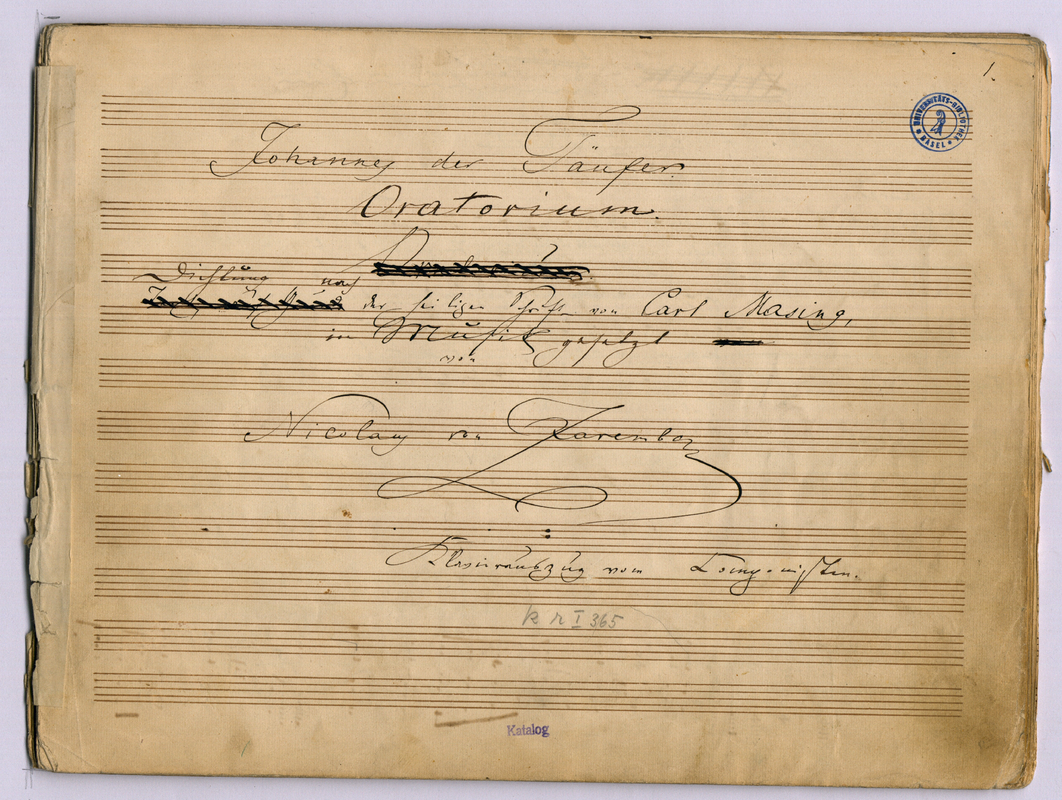 1.
UNIVERSITÄTS-BIBLIOTHEK
BASEL
Johannes der Täufer.
Oratorium.
Dichtung nach
der heiligen Schrift von Carl Masing,
in Musik gesetzt
von
Nicolaus von Zaremba
Klavierauszug vom Componisten.
k r I 365
Katalog